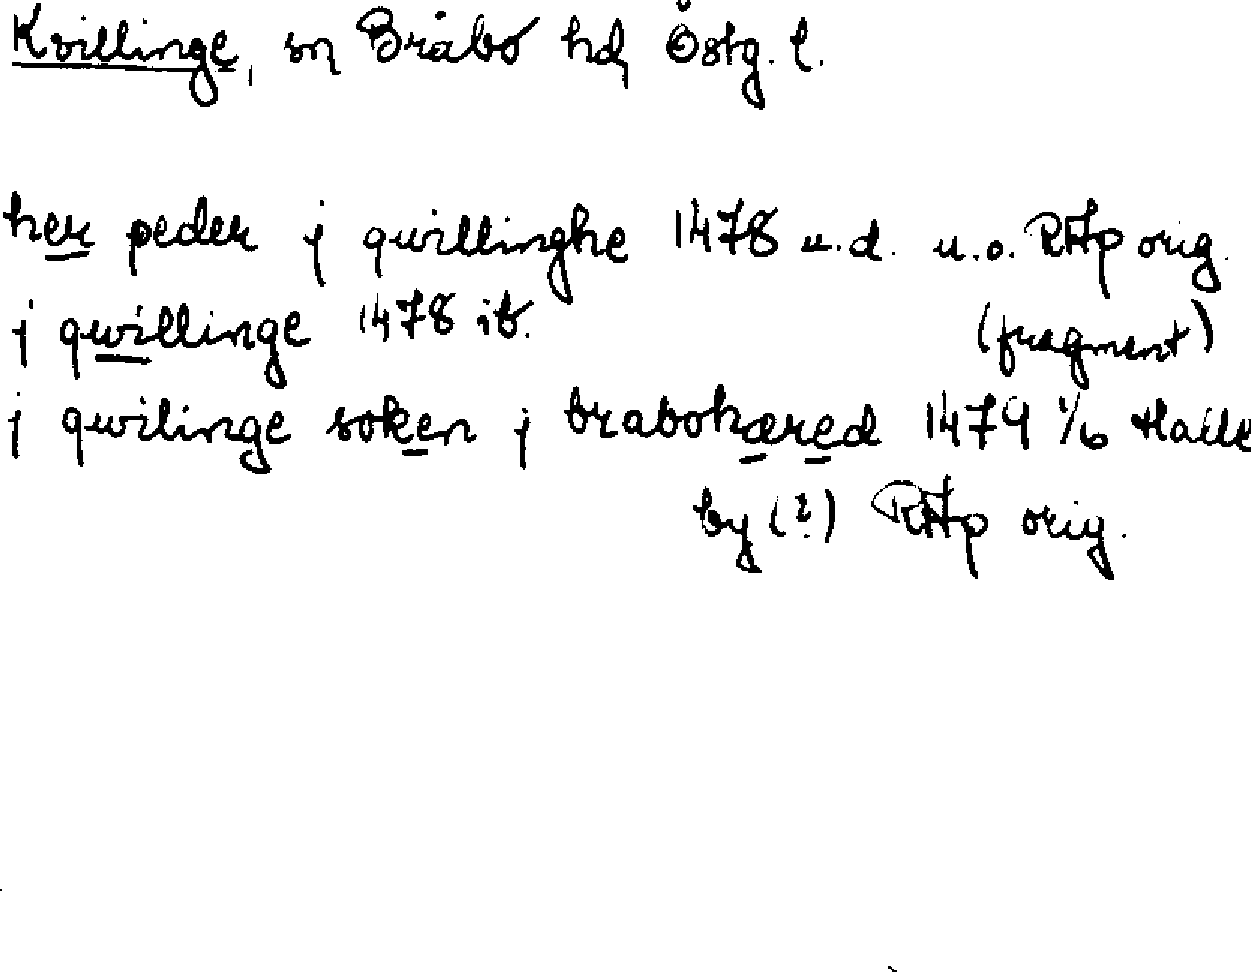 Kvillinge, sn Bråbo hd, Östg. l.
her peder j qwillinghe 1478 u.d. u.o. RAp orig.
j qwillinge 1478 ib. (fragment)
j qwilinge soken j brabohæred 1479 1/6
by (?) RAp orig.